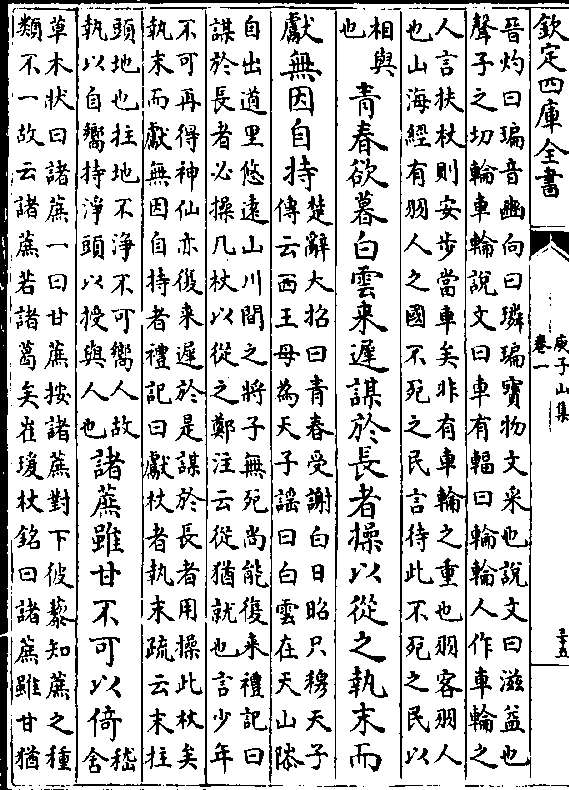 欽定四庫全書
庾子山集
卷一
三十五
晉灼曰㻞音豳向曰璘㻞寶物文采也說文曰滋益也
聲子之切輪車輪說文曰車有輻曰輪輪人作車輪之
人言扶杖則安步當車矣非有車輪之重也羽客羽人
也山海經有羽人之國不死之民言待此不死之民以
相與
也
青春欲暮白雲来遲謀於長者操以從之執末而
獻無因自持
楚辭大招曰青春受謝白日昭只穆天子
傳云西王母為天子謠曰白雲在天山𨻶
自出道里悠遠山川間之將子無死尚能復来禮記曰
謀於長者必操几杖以從之鄭注云從猶就也言少年
不可再得神仙亦復来遲於是謀於長者用操此杖矣
執末而獻無因自持者禮記曰獻杖者執末疏云末拄
頭地也拄地不淨不可嚮人故
執以自嚮持淨頭以授與人也
諸蔗雖甘不可以倚
嵇
含
草木狀曰諸蔗一曰甘蔗按諸蔗對下彼藜知蔗之種
類不一故云諸蔗若諸葛矣崔瑗杖銘曰諸蔗雖甘猶